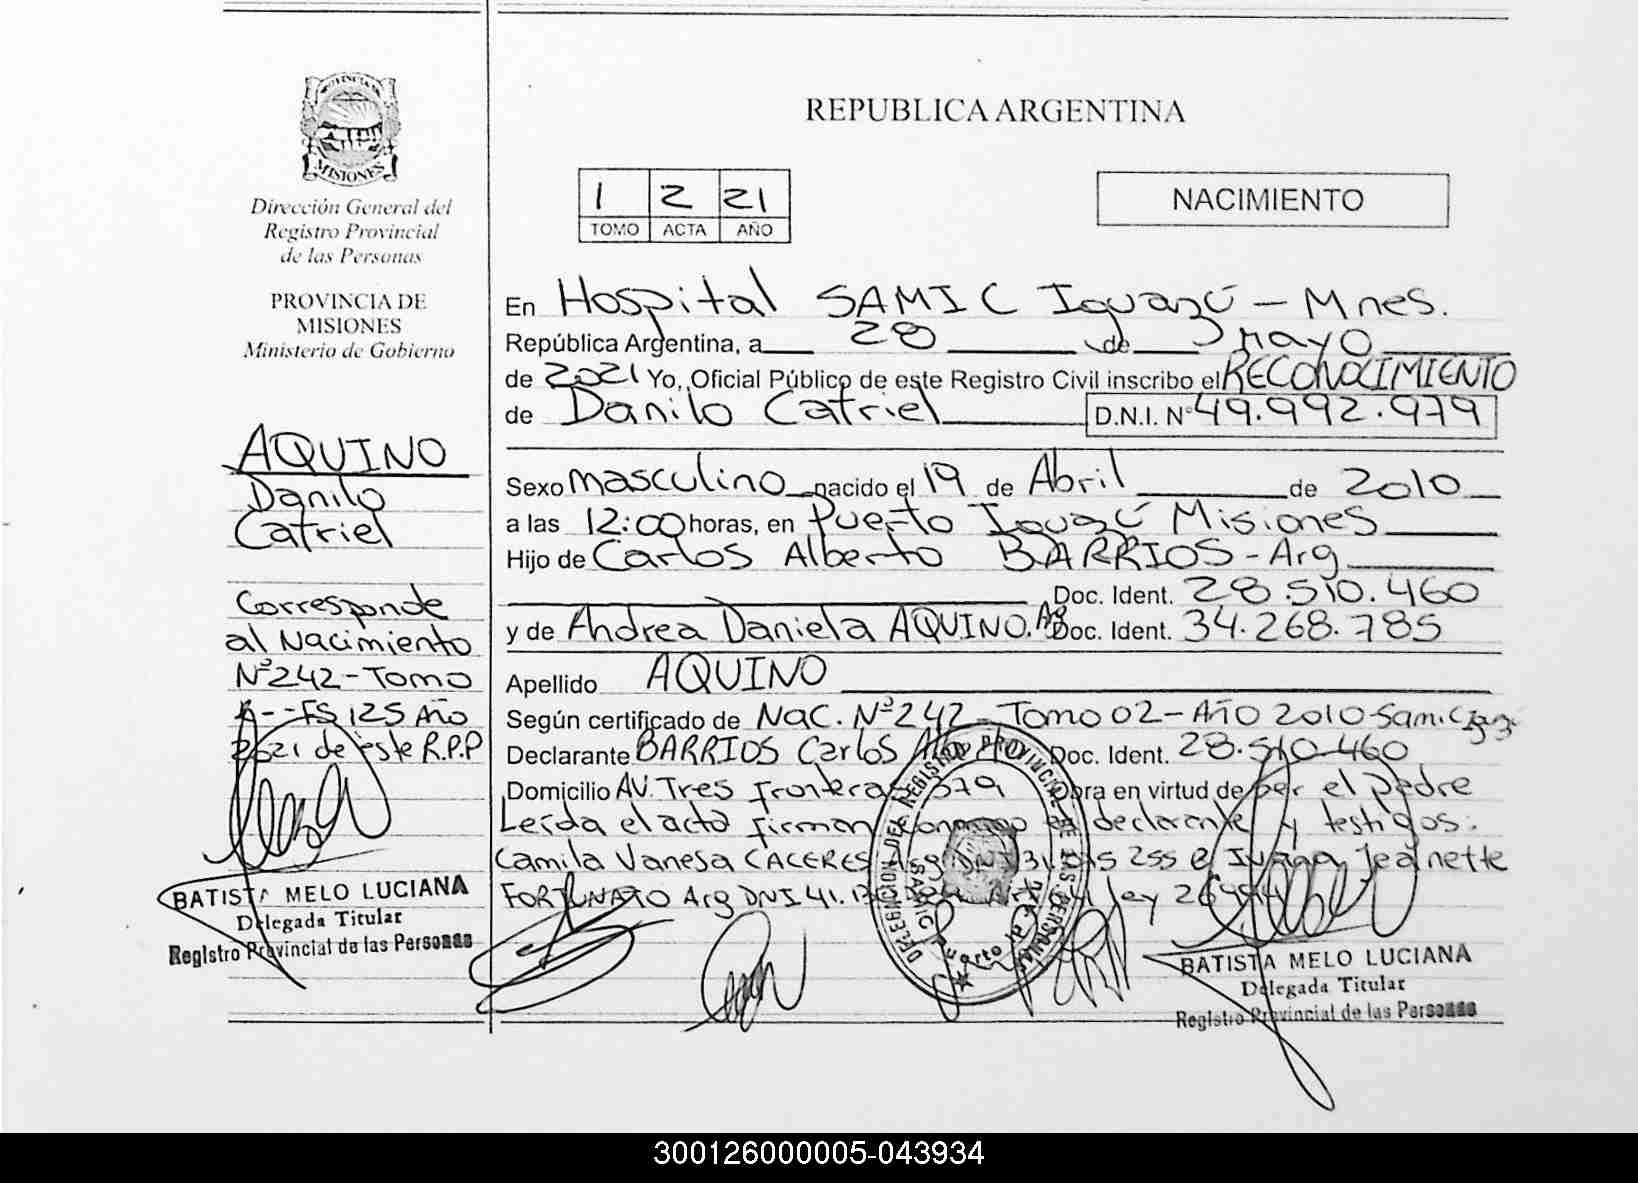 PROVINCIA DE
MISIONES
Dirección General del
Registro Provincial
de las Personas
PROVINCIA DE
MISIONES
Ministerio de Gobierno
AQUINO
Danilo
Catriel
Corresponde
al Nacimiento
Nº242-Tomo
FS 125 Año
2021 de este R.P.P
BATISTA MELO LUCIANA
Delegada Titular
Registro Provincial de las Personas
REPUBLICA ARGENTINA
1 2 21
TOMO ACTA AÑO
NACIMIENTO
En Hospital SAMIC Iguazú - Mnes.
República Argentina, a 28 de mayo
de 2021 Yo, Oficial Público de este Registro Civil inscribo el RECONOCIMIENTO
de Danilo Catriel D.N.I. Nº 49.992.979
Sexo masculino nacido el 19 de Abril de 2010
a las 12:00 horas, en Puerto Iguazú Misiones
Hijo de Carlos Alberto BARRIOS - Arg
Doc. Ident. 28.510.460
y de Andrea Daniela AQUINO. Doc. Ident. 34.268.785
Apellido AQUINO
Según certificado de Nac. Nº242 - Tomo 02 - Año 2010 - Samic
Declarante BARRIOS Carlos Doc. Ident. 28.510.460
Domicilio AV. Tres Fronteras 379 Obra en virtud de ser el padre
Leída el acta firman conmigo el declarante y testigos:
Camila Vanesa CACERES Arg DNI 255 e Ivana Jeanette
FORTUNATO Arg DNI 41. ley
DELEGACION DEL REGISTRO PROVINCIAL DE LAS PERSONAS
SAMIC Puerto
BATISTA MELO LUCIANA
Delegada Titular
Registro Provincial de las Personas
300126000005-043934